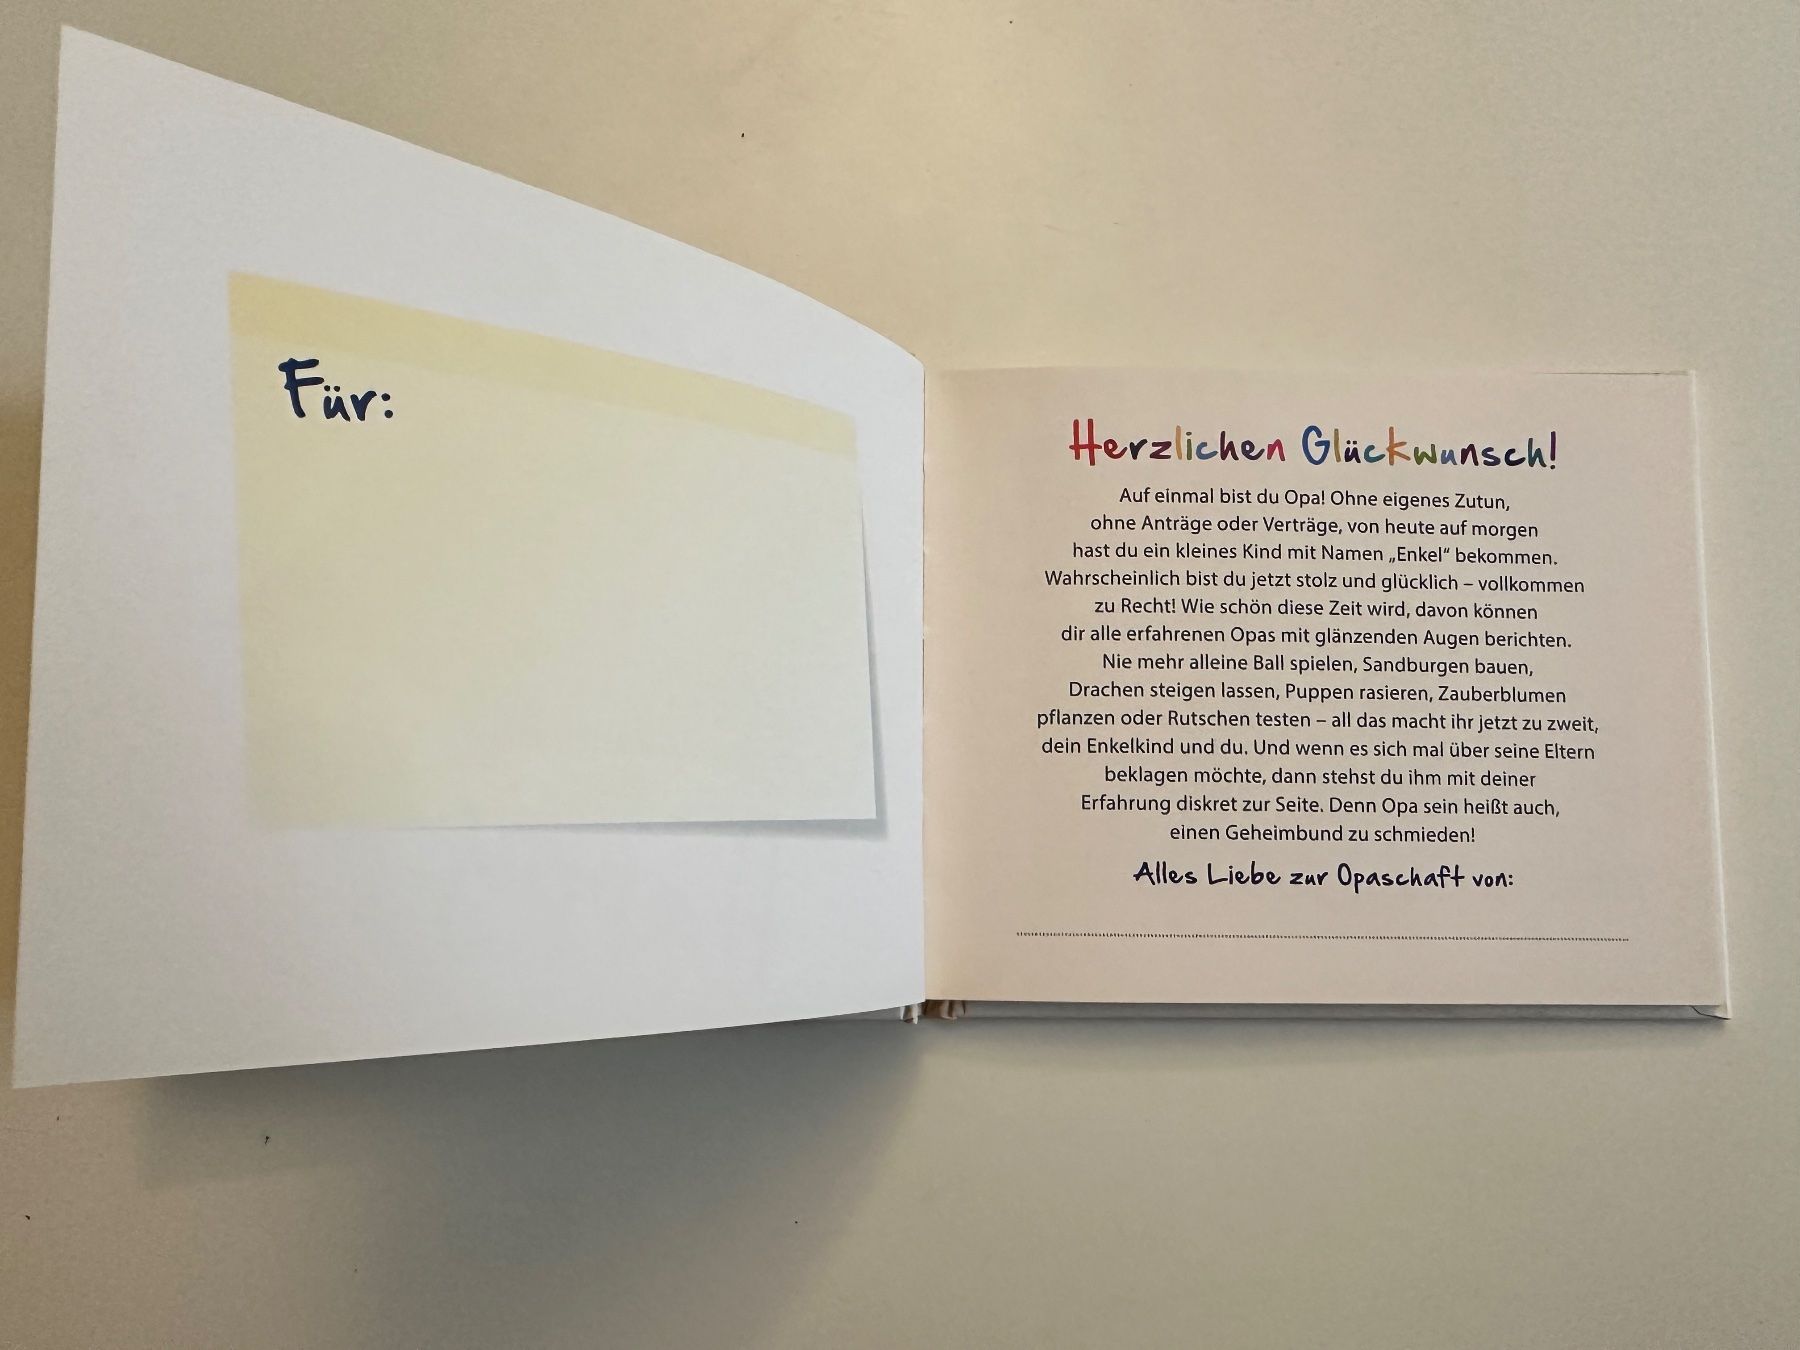 Für:
Herzlichen Glückwunsch!
Auf einmal bist du Opa! Ohne eigenes Zutun,
ohne Anträge oder Verträge, von heute auf morgen
hast du ein kleines Kind mit Namen „Enkel“ bekommen.
Wahrscheinlich bist du jetzt stolz und glücklich – vollkommen
zu Recht! Wie schön diese Zeit wird, davon können
dir alle erfahrenen Opas mit glänzenden Augen berichten.
Nie mehr alleine Ball spielen, Sandburgen bauen,
Drachen steigen lassen, Puppen rasieren, Zauberblumen
pflanzen oder Rutschen testen – all das macht ihr jetzt zu zweit,
dein Enkelkind und du. Und wenn es sich mal über seine Eltern
beklagen möchte, dann stehst du ihm mit deiner
Erfahrung diskret zur Seite. Denn Opa sein heißt auch,
einen Geheimbund zu schmieden!
Alles Liebe zur Opaschaft von: